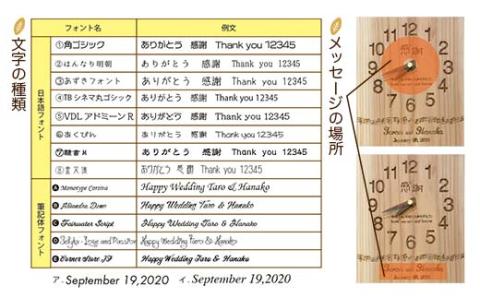 文字の種類
フォント名 例文
日本語フォント
①角ゴシック ありがとう 感謝 Thank you 12345
②はんなり明朝 ありがとう 感謝 Thank you 12345
③あずきフォント ありがとう 感謝 Thank you 12345
④TBシネマ丸ゴシック ありがとう 感謝 Thank you 12345
⑤VDLアドミーンR ありがとう 感謝 Thank you 12345
ありがとう 感謝 Thank you 12345
ありがとう 感謝 Thank you 12345
ありがとう 感謝 Thank you 12345
筆記体フォント
A Monotype Corsiva Happy Wedding Taro & Hanako
Happy Wedding Taro & Hanako
C Fairwater Script Happy Wedding Taro & Hanako
Happy Wedding Taro & Hanako
Happy Wedding Taro & Hanako
ア. September 19,2020 イ. September 19,2020
メッセージの場所
12 1 2 3 4 5 6 7 8 9 10 11
Taro & Hanako
12 1 2 3 4 5 6 7 8 9 10 11